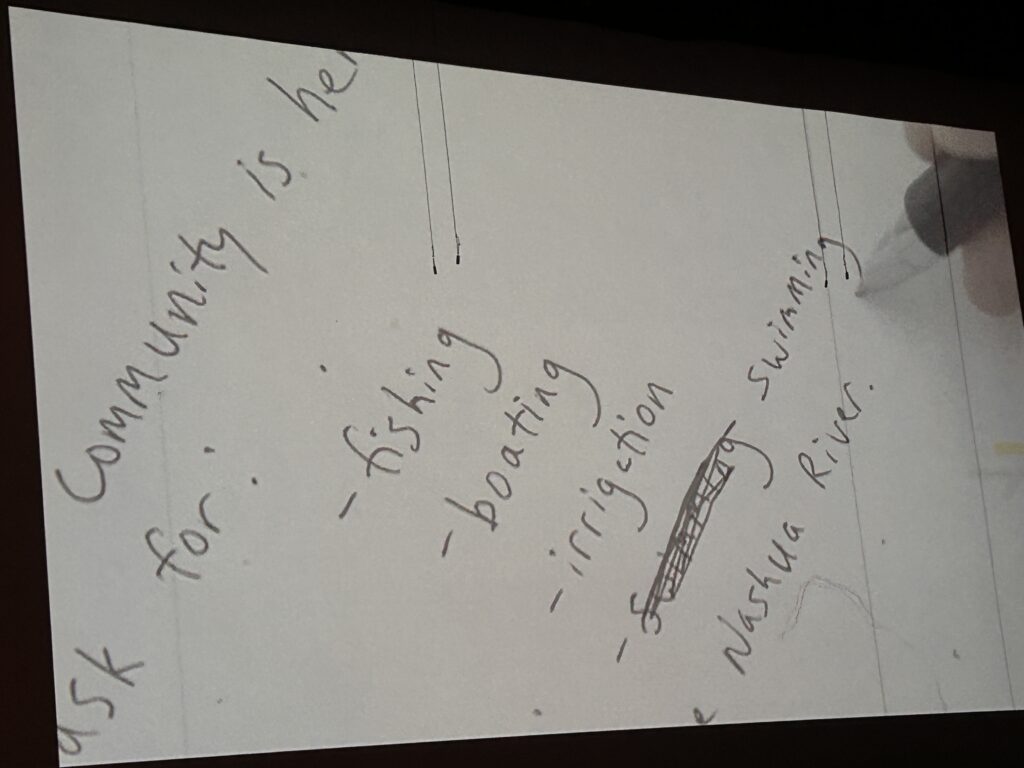 ask Community is
for:
- fishing
- boating
- irrigation
- swimming
Nashua River.